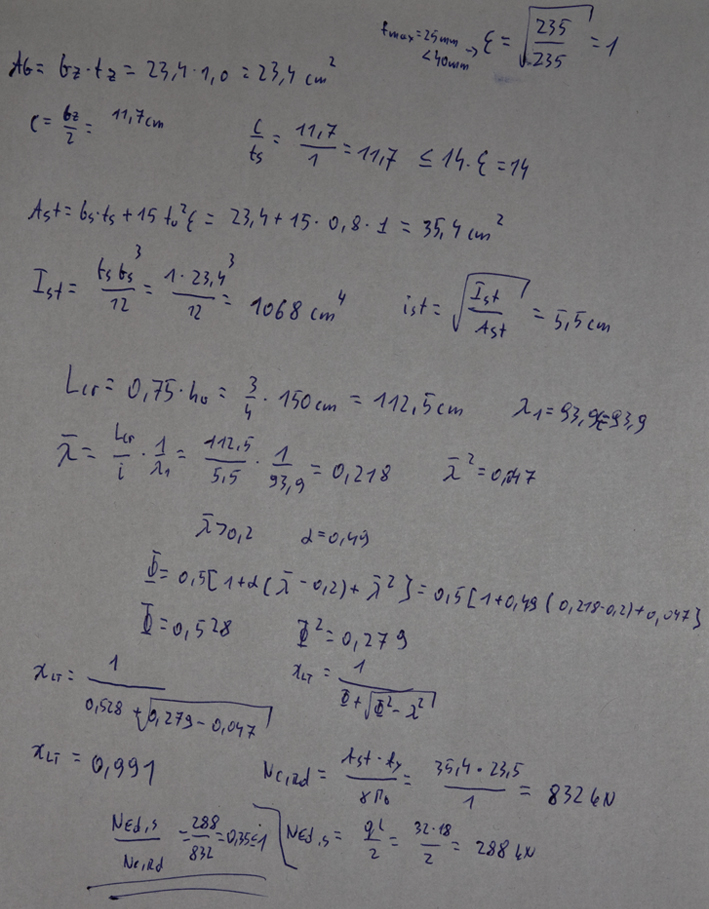 tmax = 25mm < 40mm → ε = √(235/235) = 1
Ab = bz·tz = 23,4·1,0 = 23,4 cm²
c = bz/2 = 11,7cm    c/ts = 11,7/1 = 11,7 ≤ 14·ε = 14
Ast = bs·ts + 15 tw²ε = 23,4 + 15·0,8·1 = 35,4 cm²
Ist = ts bs³/12 = 1·23,4³/12 = 1068 cm⁴    ist = √(Ist/Ast) = 5,5 cm
Lcr = 0,75·hw = 3/4·150cm = 112,5cm    λ1 = 93,9ε = 93,9
λ̄ = Lcr/i · 1/λ1 = 112,5/5,5 · 1/93,9 = 0,218    λ̄² = 0,047
λ̄ > 0,2    α = 0,49
Φ = 0,5[1+α(λ̄-0,2)+λ̄²] = 0,5[1+0,49(0,218-0,2)+0,047]
Φ = 0,528    Φ² = 0,279
χLT = 1/(0,528+√(0,279-0,047))    χLT = 1/(Φ+√(Φ²-λ̄²))
χLT = 0,991    Nc,Rd = Ast·fy/γM0 = 35,4·23,5/1 = 832 kN
NEd,s/Nc,Rd = 288/832 = 0,35 ≤ 1    NEd,s = qL/2 = 32·18/2 = 288 kN